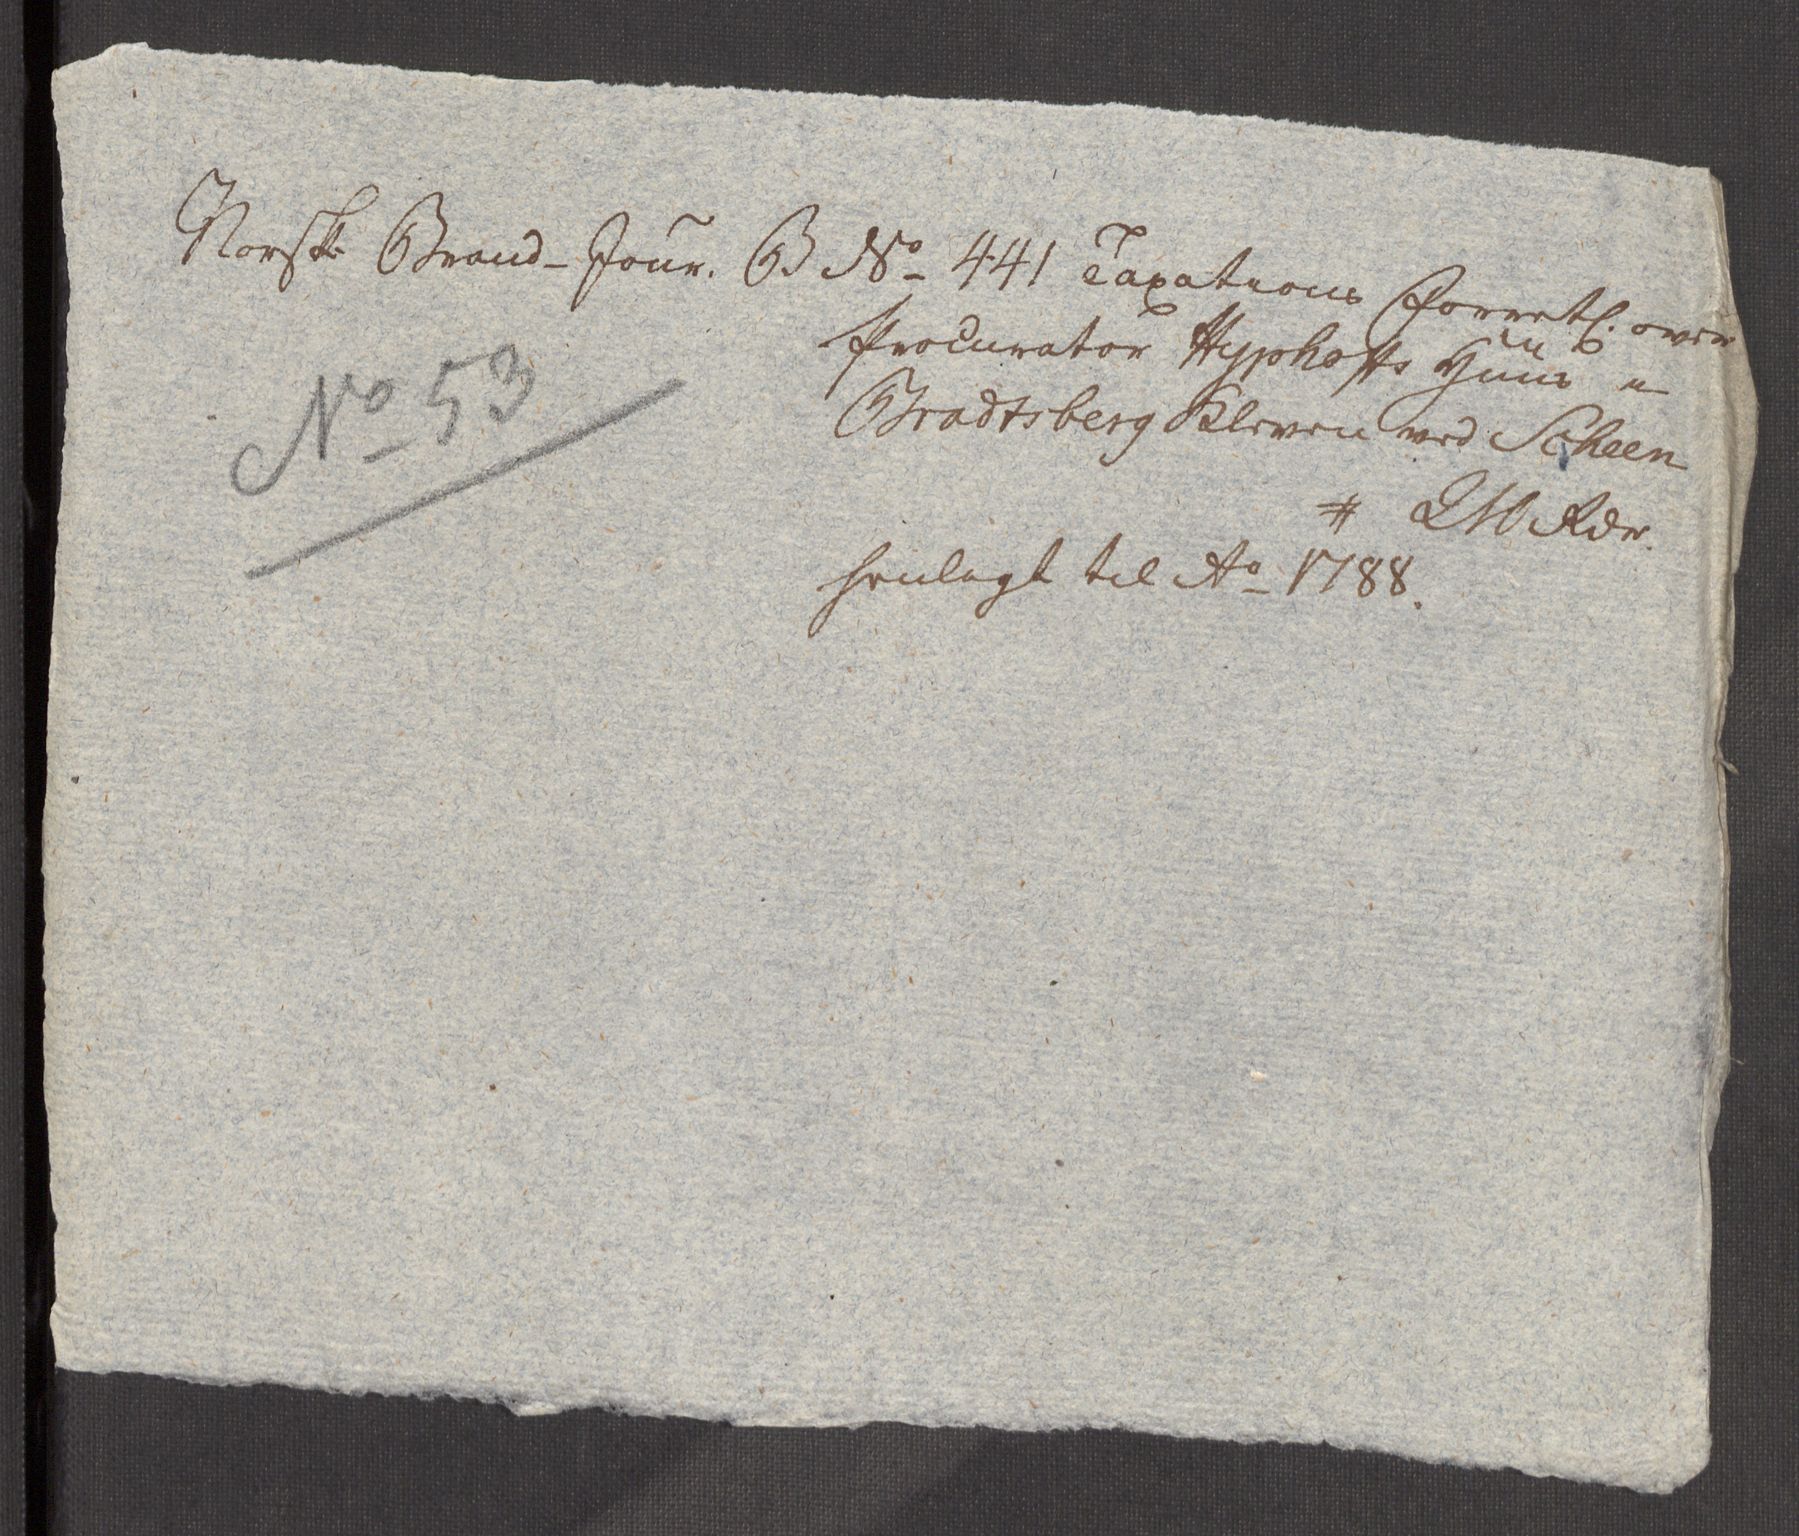 Norsk Brand-Jour. B No 441 Taxations Forretl. over
Procurator Hyphoffs Huus
Bradtsberg Kleven ved Scheen
henlagt til Ao 1788.
No 53